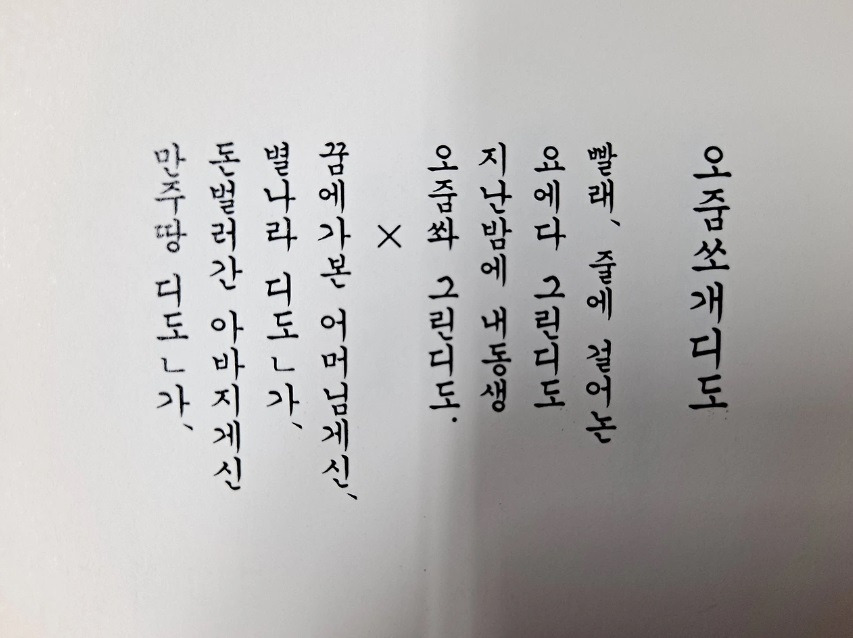 오줌쏘개디도
빨래、줄에 걸어논
요에다 그린디도
지난밤에 내동생
오줌쏴 그린디도.
×
꿈에가본 어머님계신、
별나라 디도ㄴ가、
돈벌러간 아바지계신
만주땅 디도ㄴ가、